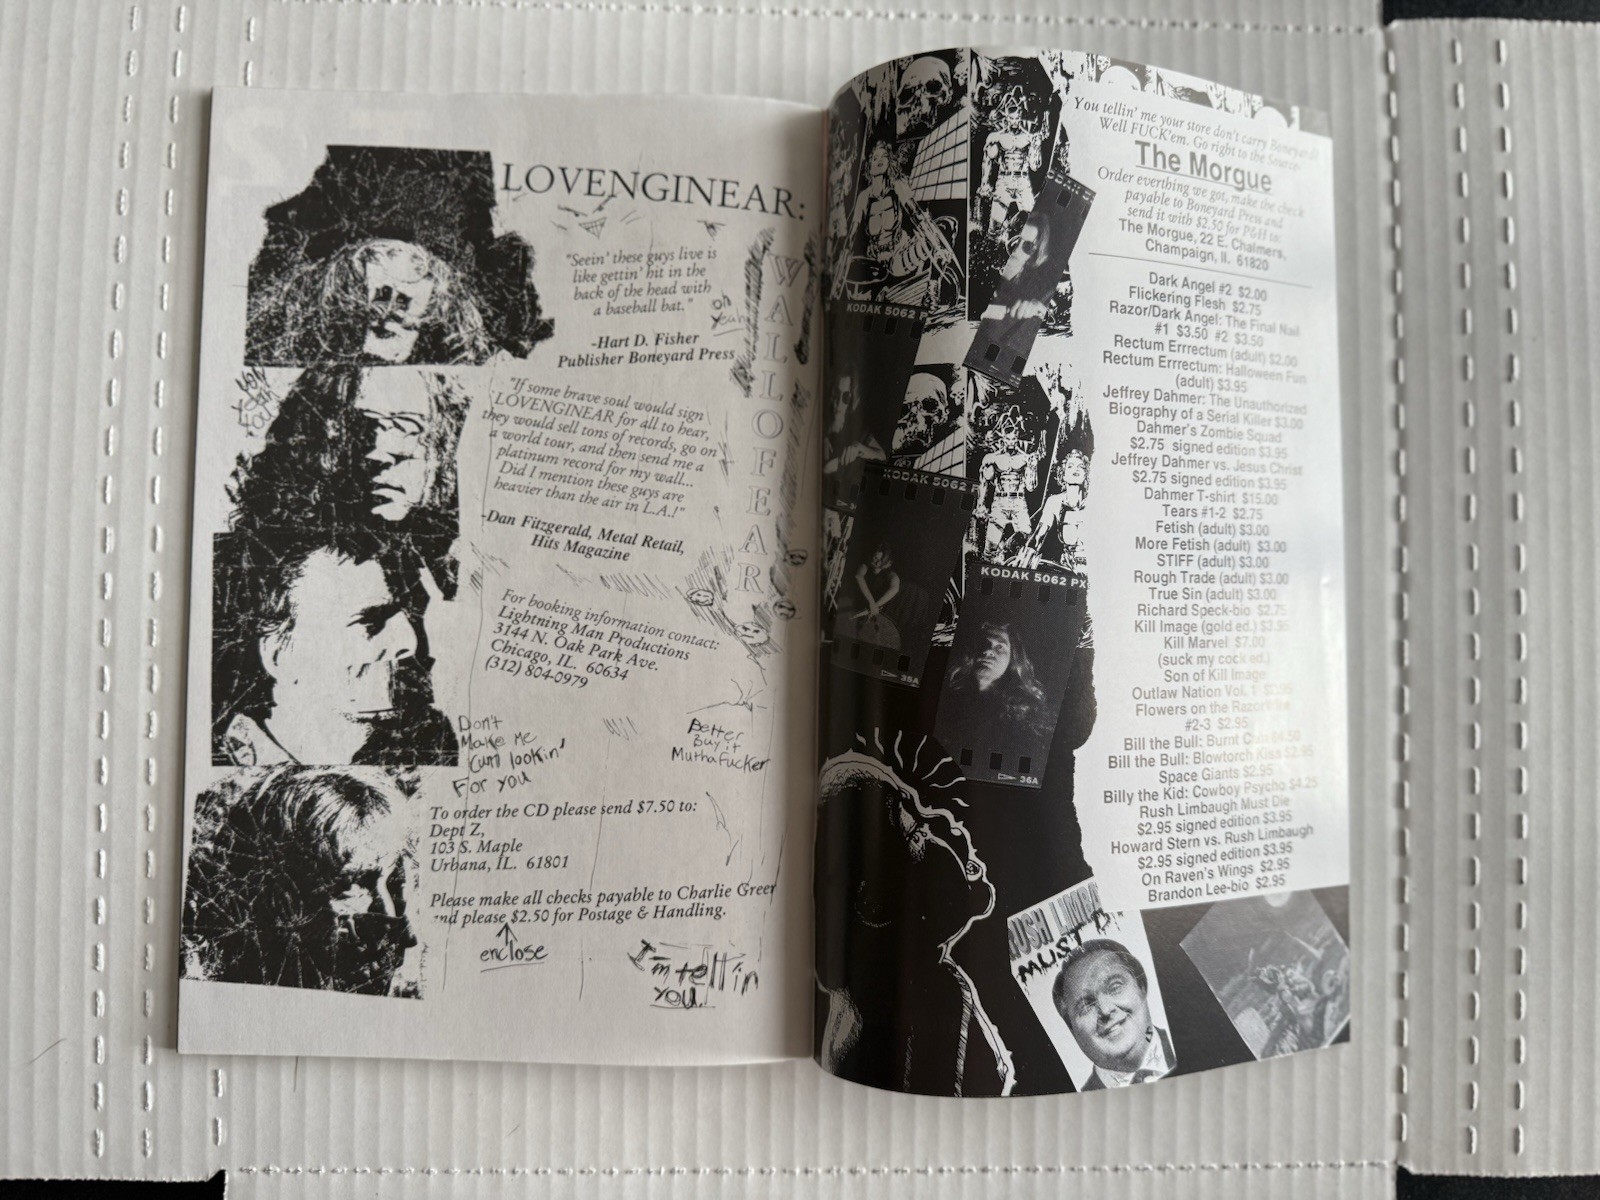 LOVENGINEAR:
"Seein' these guys live is
like gettin' hit in the
back of the head with
a baseball bat."
oh
Yeah
-Hart D. Fisher
Publisher Boneyard Press
WALL OF EAR
"If some brave soul would sign
LOVENGINEAR for all to hear,
they would sell tons of records, go on
a world tour, and then send me a
platinum record for my wall...
Did I mention these guys are
heavier than the air in L.A.!"
-Dan Fitzgerald, Metal Retail,
Hits Magazine
For booking information contact:
Lightning Man Productions
3144 N. Oak Park Ave.
Chicago, IL. 60634
(312) 804-0979
Don't
Make Me
Cum lookin'
For you
Better
Buy it
Muthafucker
To order the CD please send $7.50 to:
Dept Z,
103 S. Maple
Urbana, IL. 61801
Please make all checks payable to Charlie Green
and please $2.50 for Postage & Handling.
enclose
I'm tellin
you.
You tellin' me your store don't carry Boneyard?
Well FUCK'em. Go right to the Source-
The Morgue
Order everthing we got, make the check
payable to Boneyard Press and
send it with $2.50 for P&H to:
The Morgue, 22 E. Chalmers,
Champaign, Il. 61820
Dark Angel #2 $2.00
Flickering Flesh $2.75
Razor/Dark Angel: The Final Nail
#1 $3.50 #2 $3.50
Rectum Errrectum (adult) $2.00
Rectum Errrectum: Halloween Fun
(adult) $3.95
Jeffrey Dahmer: The Unauthorized
Biography of a Serial Killer $3.00
Dahmer's Zombie Squad
$2.75 signed edition $3.95
Jeffrey Dahmer vs. Jesus Christ
$2.75 signed edition $3.95
Dahmer T-shirt $15.00
Tears #1-2 $2.75
Fetish (adult) $3.00
More Fetish (adult) $3.00
STIFF (adult) $3.00
Rough Trade (adult) $3.00
True Sin (adult) $3.00
Richard Speck-bio $2.75
Kill Image (gold ed.) $3.95
Kill Marvel $7.00
(suck my cock ed.)
Son of Kill Image
Outlaw Nation Vol. 1
Flowers on the Razorwire
#2-3 $2.95
Bill the Bull: Burnt Cain $4.50
Bill the Bull: Blowtorch Kiss $2.95
Space Giants $2.95
Billy the Kid: Cowboy Psycho $4.25
Rush Limbaugh Must Die
$2.95 signed edition $3.95
Howard Stern vs. Rush Limbaugh
$2.95 signed edition $3.95
On Raven's Wings $2.95
Brandon Lee-bio $2.95
KODAK 5062 P
KODAK 5062 P
KODAK 5062 PX
35A
36A
RUSH LIMBA
MUST D